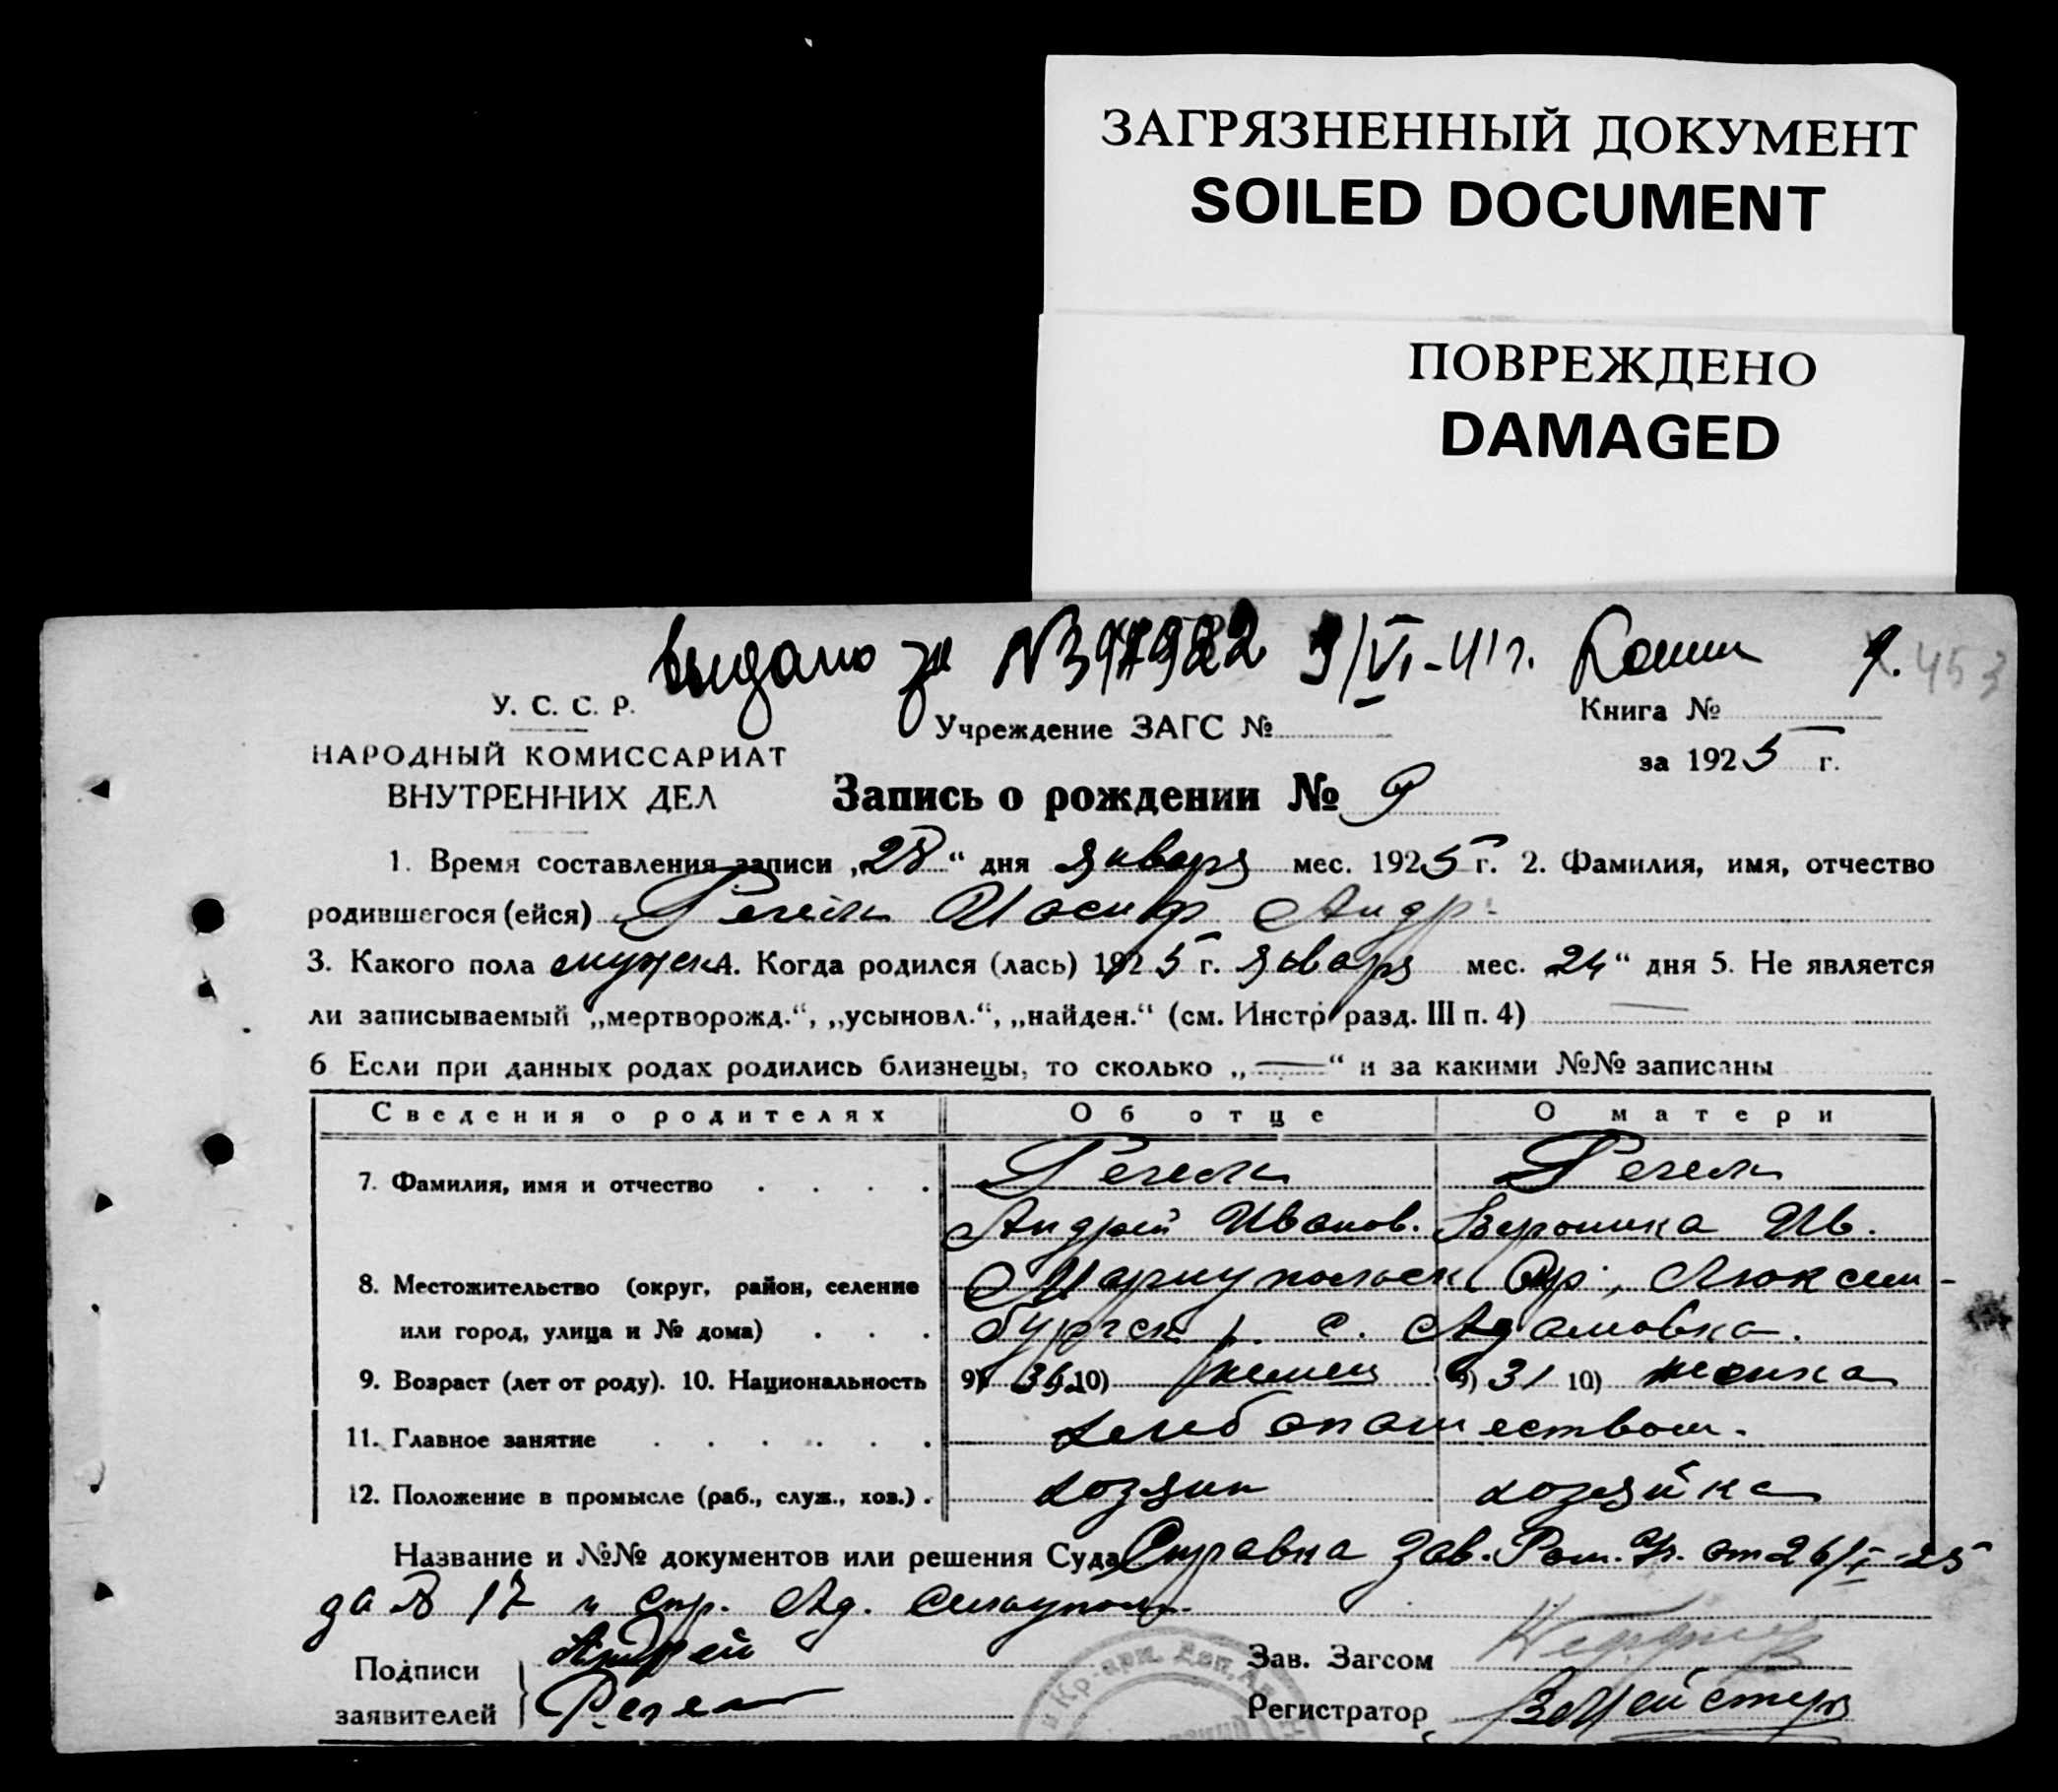 ЗАГРЯЗНЕННЫЙ ДОКУМЕНТ
SOILED DOCUMENT
ПОВРЕЖДЕНО
DAMAGED
Выдано за N 397922 9/VI-41 г. 9. 453
У. С. С. Р.
Учреждение ЗАГС №
Книга №
НАРОДНЫЙ КОМИССАРИАТ
за 1925 г.
ВНУТРЕННИХ ДЕЛ
Запись о рождении № 9
1. Время составления записи „28“ дня января мес. 1925 г. 2. Фамилия, имя, отчество
родившегося (ейся) Регель Иосиф Андр.
3. Какого пола мужск 4. Когда родился (лась) 1925 г. января мес. 24“ дня 5. Не является
ли записываемый „мертворожд.“, „усыновл.“, „найден.“ (см. Инстр разд. III п. 4) —
6 Если при данных родах родились близнецы, то сколько „—“ и за какими №№ записаны
Сведения о родителях Об отце О матери
7. Фамилия, имя и отчество . . . . Регель Регель
Андрей Иванов. Вероника Ив.
8. Местожительство (округ, район, селение Мариупольск Окр., Люксем-
или город, улица и № дома) . . . бургск р. с. Адамовка.
9. Возраст (лет от роду). 10. Национальность 9) 10) немец 9) 31 10) немка
11. Главное занятие . . . . . . хлебопашеством.
12. Положение в промысле (раб., служ., хоз.) . хозяин хозяйка
Название и №№ документов или решения Суда Справка Зав. от 26/I-25
за № 17 и спр. Ад. сельупол.
Подписи Андрей Зав. Загсом
заявителей Регель Регистратор